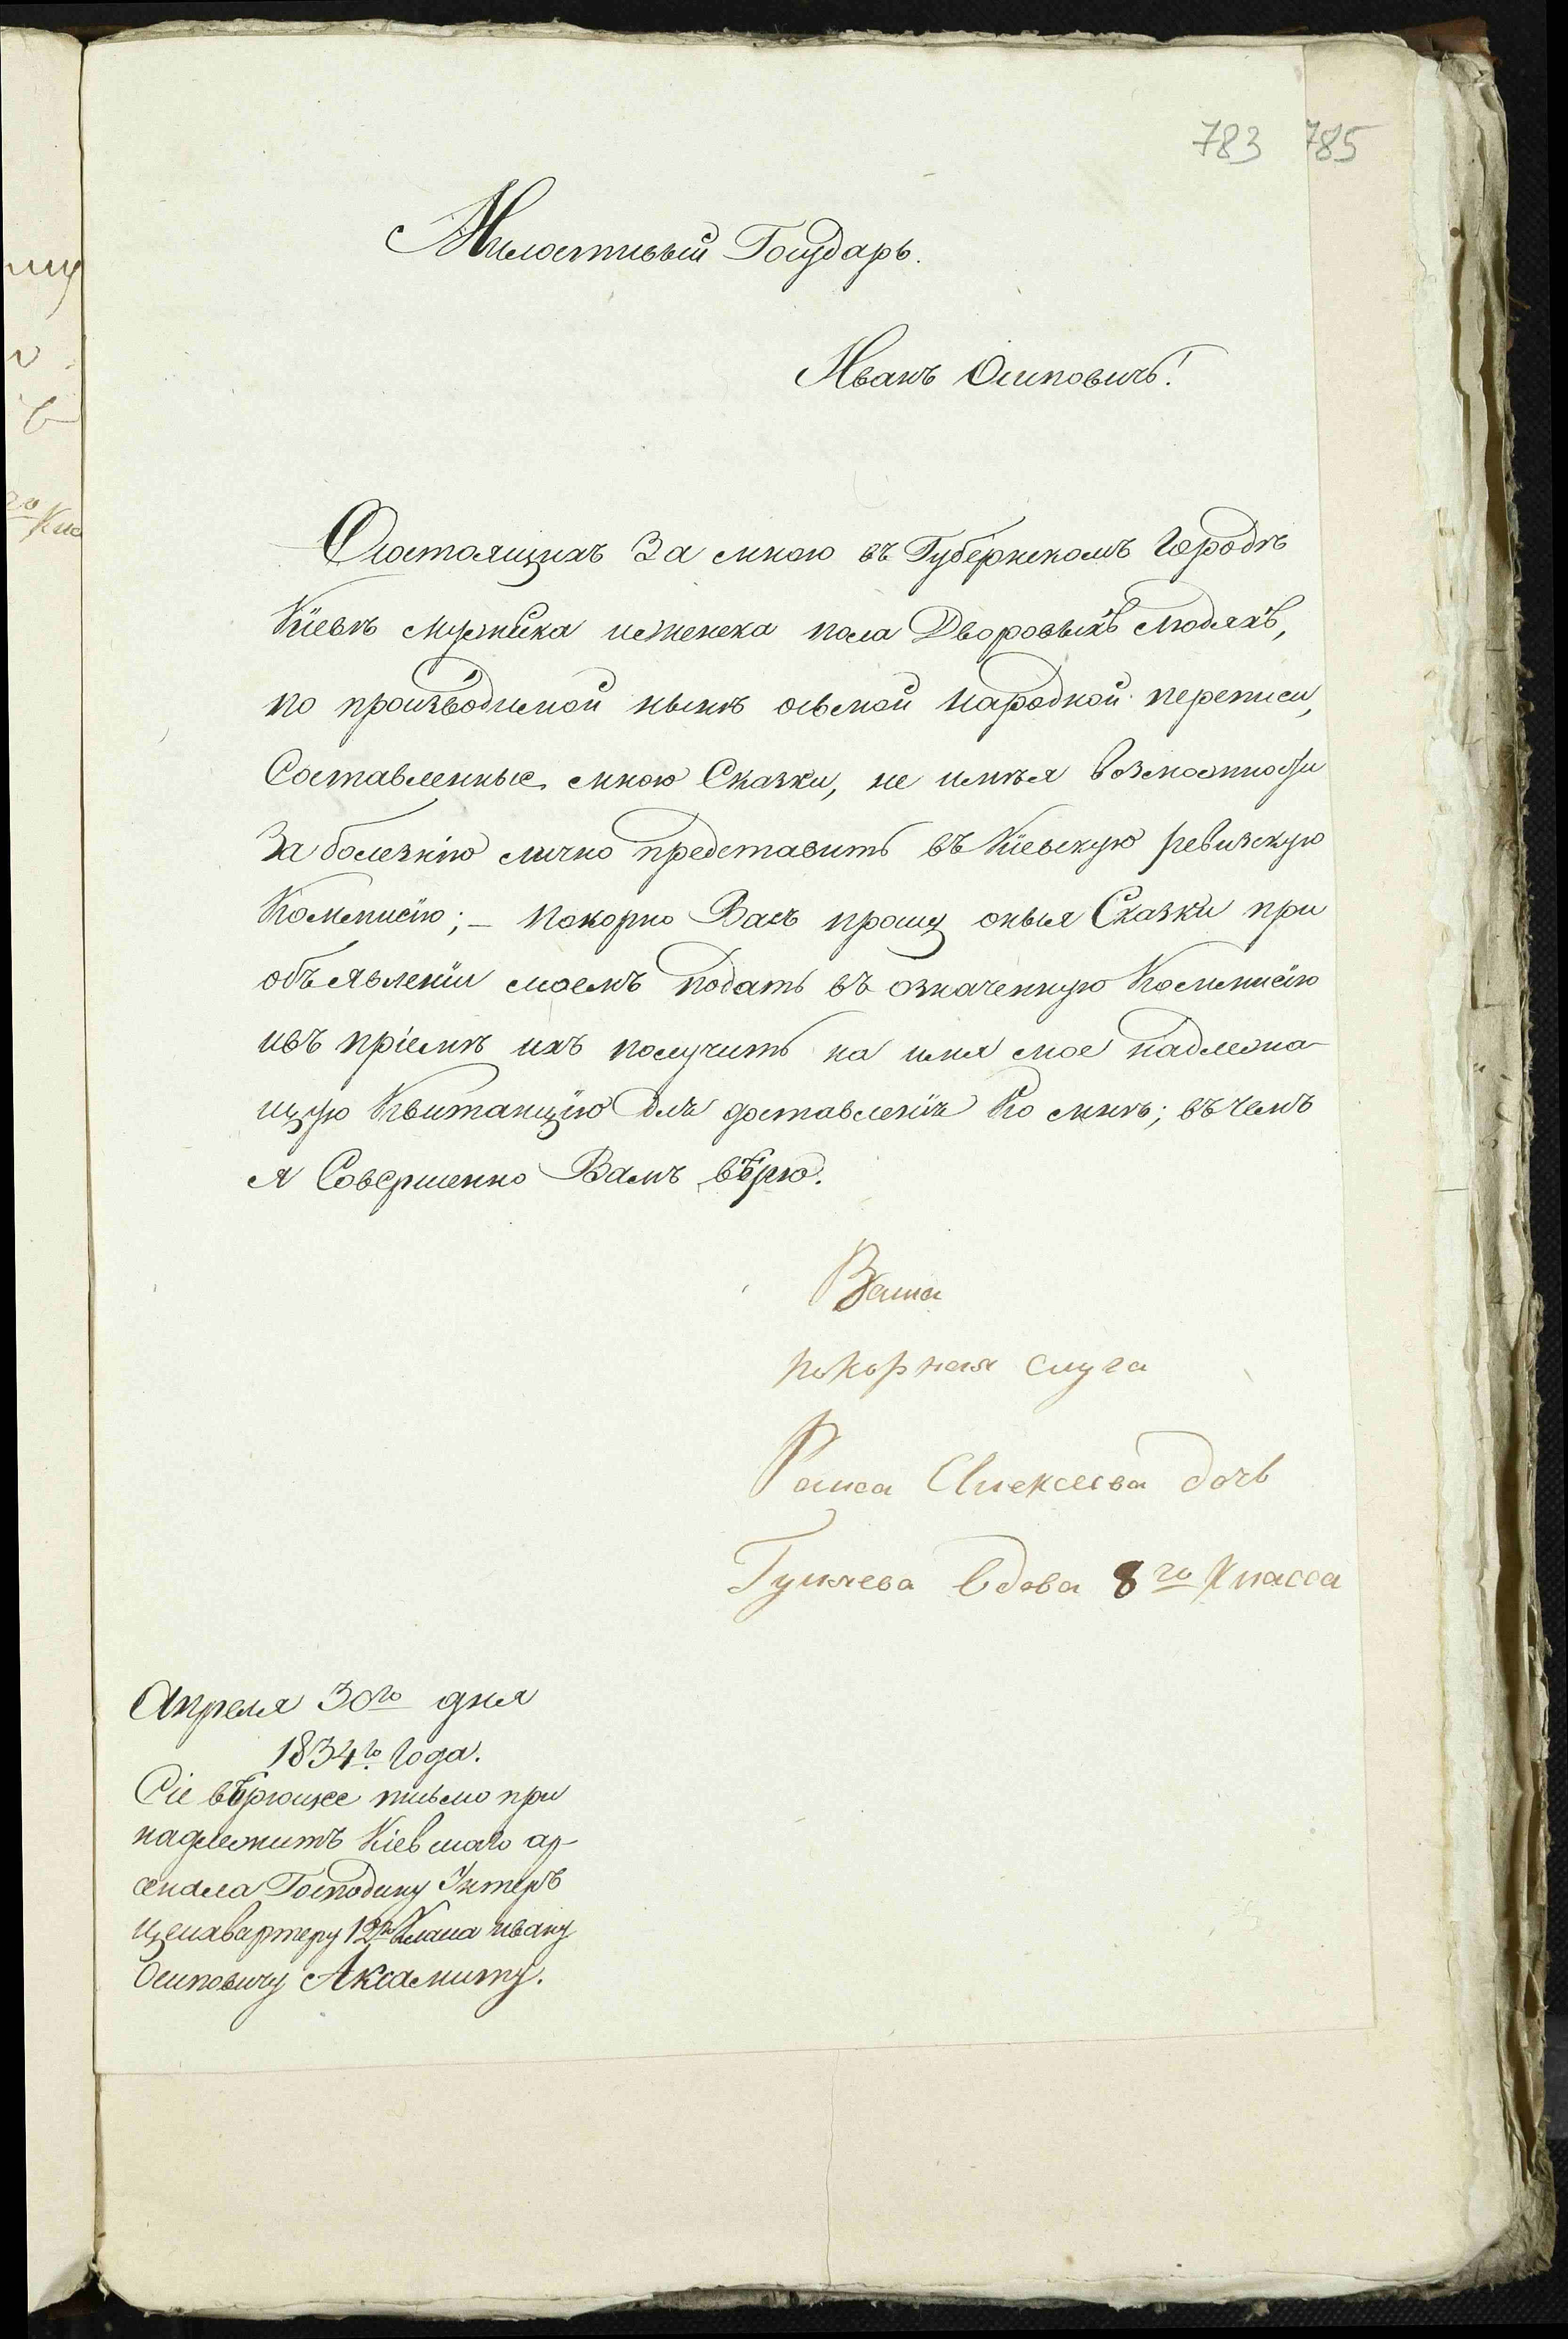 783 785
Милостивый Государь.
Иванъ Осиповичъ!
О состоящихъ За мною въ Губернскомъ городѣ
Кіевѣ мужеска и женска пола Дворовыхъ людяхъ,
по производимой нынѣ осьмой народной переписи,
Составленные мною Сказки, не имѣя возможности
За болезнію лично представить въ Кіевскую ревизскую
Коммисію; – покорно Васъ прошу оныя Сказки при
объявленіи моемъ подать въ означенную Коммисію
и въ пріемѣ ихъ получить на имя мое надлежа-
щую Квитанцію для доставленія Ко мнѣ; въ чемъ
я Совершенно Вамъ вѣрю.
Ваша
покорная слуга
Раиса Алексеева дочь
вдова 8го Класса
Апреля 30го дня
1834го года.
Сіе вѣрющее письмо при
надлежитъ Кіевскаго ар-
сенала Господину Унтеръ
Цейхвартеру 12го Класа Ивану
Осиповичу Аксамиту.